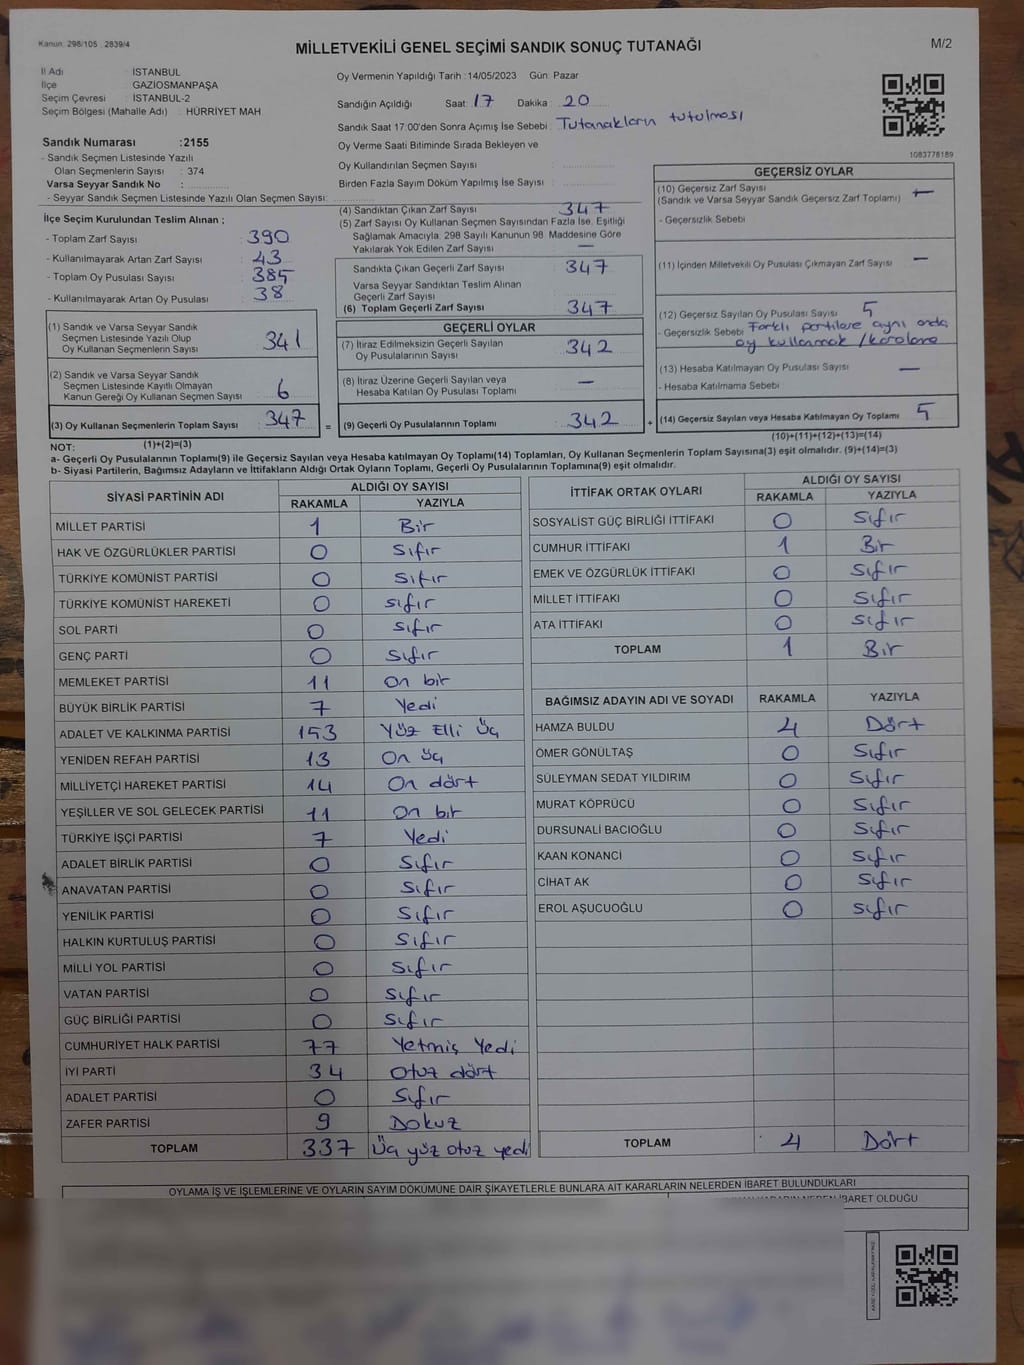 Kanun: 298/105 , 2839/4
MİLLETVEKİLİ GENEL SEÇİMİ SANDIK SONUÇ TUTANAĞI
M/2
İl Adı : İSTANBUL
İlçe : GAZİOSMANPAŞA
Seçim Çevresi : İSTANBUL-2
Seçim Bölgesi (Mahalle Adı) : HÜRRİYET MAH
Sandık Numarası :2155
- Sandık Seçmen Listesinde Yazılı
Olan Seçmenlerin Sayısı : 374
Varsa Seyyar Sandık No :
- Seyyar Sandık Seçmen Listesinde Yazılı Olan Seçmen Sayısı:
Oy Vermenin Yapıldığı Tarih :14/05/2023 Gün: Pazar
Sandığın Açıldığı Saat: 17 Dakika : 20
Sandık Saat 17:00'den Sonra Açılmış İse Sebebi : Tutanakların tutulması
Oy Verme Saati Bitiminde Sırada Bekleyen ve
Oy Kullandırılan Seçmen Sayısı :
Birden Fazla Sayım Döküm Yapılmış İse Sayısı :
1083778189
İlçe Seçim Kurulundan Teslim Alınan ;
- Toplam Zarf Sayısı : 390
- Kullanılmayarak Artan Zarf Sayısı : 43
- Toplam Oy Pusulası Sayısı : 385
- Kullanılmayarak Artan Oy Pusulası : 38
(1) Sandık ve Varsa Seyyar Sandık
Seçmen Listesinde Yazılı Olup
Oy Kullanan Seçmenlerin Sayısı : 341
(2) Sandık ve Varsa Seyyar Sandık
Seçmen Listesinde Kayıtlı Olmayan
Kanun Gereği Oy Kullanan Seçmen Sayısı : 6
(3) Oy Kullanan Seçmenlerin Toplam Sayısı : 347
(1)+(2)=(3)
(4) Sandıktan Çıkan Zarf Sayısı : 347
(5) Zarf Sayısı Oy Kullanan Seçmen Sayısından Fazla İse, Eşitliği
Sağlamak Amacıyla, 298 Sayılı Kanunun 98. Maddesine Göre
Yakılarak Yok Edilen Zarf Sayısı : —
Sandıkta Çıkan Geçerli Zarf Sayısı : 347
Varsa Seyyar Sandıktan Teslim Alınan
Geçerli Zarf Sayısı :
(6) Toplam Geçerli Zarf Sayısı : 347
GEÇERLİ OYLAR
(7) İtiraz Edilmeksizin Geçerli Sayılan
Oy Pusulalarının Sayısı : 342
(8) İtiraz Üzerine Geçerli Sayılan veya
Hesaba Katılan Oy Pusulası Toplamı : —
= (9) Geçerli Oy Pusulalarının Toplamı : 342
GEÇERSİZ OYLAR
(10) Geçersiz Zarf Sayısı : —
(Sandık ve Varsa Seyyar Sandık Geçersiz Zarf Toplamı)
- Geçersizlik Sebebi
(11) İçinden Milletvekili Oy Pusulası Çıkmayan Zarf Sayısı : —
(12) Geçersiz Sayılan Oy Pusulası Sayısı : 5
- Geçersizlik Sebebi Farklı partilere aynı anda
oy kullanmak /karalama
(13) Hesaba Katılmayan Oy Pusulası Sayısı : —
- Hesaba Katılmama Sebebi
+ (14) Geçersiz Sayılan veya Hesaba Katılmayan Oy Toplamı : 5
(10)+(11)+(12)+(13)=(14)
NOT:
a- Geçerli Oy Pusulalarının Toplamı(9) ile Geçersiz Sayılan veya Hesaba katılmayan Oy Toplamı(14) Toplamları, Oy Kullanan Seçmenlerin Toplam Sayısına(3) eşit olmalıdır. (9)+(14)=(3)
b- Siyasi Partilerin, Bağımsız Adayların ve İttifakların Aldığı Ortak Oyların Toplamı, Geçerli Oy Pusulalarının Toplamına(9) eşit olmalıdır.
SİYASİ PARTİNİN ADI ALDIĞI OY SAYISI
RAKAMLA YAZIYLA
MİLLET PARTİSİ 1 Bir
HAK VE ÖZGÜRLÜKLER PARTİSİ 0 Sıfır
TÜRKİYE KOMÜNİST PARTİSİ 0 Sıfır
TÜRKİYE KOMÜNİST HAREKETİ 0 sıfır
SOL PARTİ 0 Sıfır
GENÇ PARTİ 0 Sıfır
MEMLEKET PARTİSİ 11 On bir
BÜYÜK BİRLİK PARTİSİ 7 Yedi
ADALET VE KALKINMA PARTİSİ 153 Yüz Elli Üç
YENİDEN REFAH PARTİSİ 13 On üç
MİLLİYETÇİ HAREKET PARTİSİ 14 On dört
YEŞİLLER VE SOL GELECEK PARTİSİ 11 On bir
TÜRKİYE İŞÇİ PARTİSİ 7 Yedi
ADALET BİRLİK PARTİSİ 0 Sıfır
ANAVATAN PARTİSİ 0 Sıfır
YENİLİK PARTİSİ 0 Sıfır
HALKIN KURTULUŞ PARTİSİ 0 Sıfır
MİLLİ YOL PARTİSİ 0 Sıfır
VATAN PARTİSİ 0 Sıfır
GÜÇ BİRLİĞİ PARTİSİ 0 Sıfır
CUMHURİYET HALK PARTİSİ 77 Yetmiş Yedi
İYİ PARTİ 34 Otuz dört
ADALET PARTİSİ 0 Sıfır
ZAFER PARTİSİ 9 Dokuz
TOPLAM 337 Üç yüz otuz yedi
İTTİFAK ORTAK OYLARI ALDIĞI OY SAYISI
RAKAMLA YAZIYLA
SOSYALİST GÜÇ BİRLİĞİ İTTİFAKI 0 Sıfır
CUMHUR İTTİFAKI 1 Bir
EMEK VE ÖZGÜRLÜK İTTİFAKI 0 Sıfır
MİLLET İTTİFAKI 0 Sıfır
ATA İTTİFAKI 0 Sıfır
TOPLAM 1 Bir
BAĞIMSIZ ADAYIN ADI VE SOYADI RAKAMLA YAZIYLA
HAMZA BULDU 4 Dört
ÖMER GÖNÜLTAŞ 0 Sıfır
SÜLEYMAN SEDAT YILDIRIM 0 Sıfır
MURAT KÖPRÜCÜ 0 Sıfır
DURSUNALİ BACIOĞLU 0 Sıfır
KAAN KONANCİ 0 Sıfır
CİHAT AK 0 Sıfır
EROL AŞUCUOĞLU 0 Sıfır
TOPLAM 4 Dört
OYLAMA İŞ VE İŞLEMLERİNE VE OYLARIN SAYIM DÖKÜMÜNE DAİR ŞİKAYETLERLE BUNLARA AİT KARARLARIN NELERDEN İBARET BULUNDUKLARI
NEDEN İBARET OLDUĞU